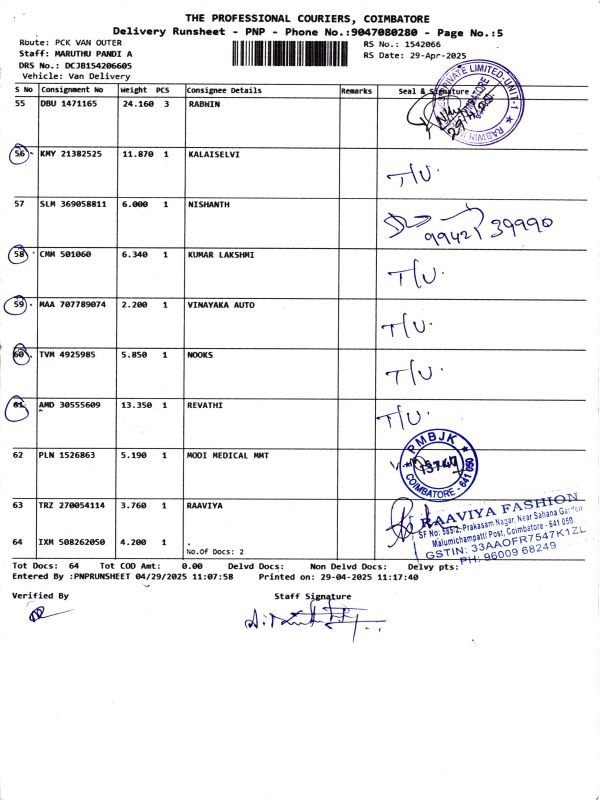 THE PROFESSIONAL COURIERS, COIMBATORE
Delivery Runsheet - PNP - Phone No.:9047080280 - Page No.:5
Route: PCK VAN OUTER
RS No.: 1542066
Staff: MARUTHU PANDI A
RS Date: 29-Apr-2025
DRS No.: DCJB154206605
Vehicle: Van Delivery
S No Consignment No Weight PCS Consignee Details Remarks Seal & Signature
PRIVATE LIMITED-UNIT-1 ★ RABWIN
55 DBU 1471165 24.160 3 RABWIN
56 KMY 21382525 11.870 1 KALAISELVI T/U.
57 SLM 369058811 6.000 1 NISHANTH
99421 39990
58 CMM 501060 6.340 1 KUMAR LAKSHMI T/U.
59 MAA 707789074 2.200 1 VINAYAKA AUTO T/U.
60 TVM 4925985 5.850 1 NOOKS T/U.
61 AMD 30555609 13.350 1 REVATHI T/U.
62 PLN 1526863 5.190 1 MODI MEDICAL MMT
PMBJK
13747
COIMBATORE - 641 050
63 TRZ 270054114 3.760 1 RAAVIYA
RAAVIYA FASHION
SF No: 565/2, Prakasam Nagar, Near Sahana Garden
Malumichampatti Post, Coimbatore - 641 050.
GSTIN: 33AAOFR7547K1ZL
PH: 96009 68249
64 IXM 508262050 4.200 1 .
No.Of Docs: 2
Tot Docs: 64 Tot COD Amt: 0.00 Delvd Docs: Non Delvd Docs: Delvy pts:
Entered By :PNPRUNSHEET 04/29/2025 11:07:58 Printed on: 29-04-2025 11:17:40
Verified By Staff Signature